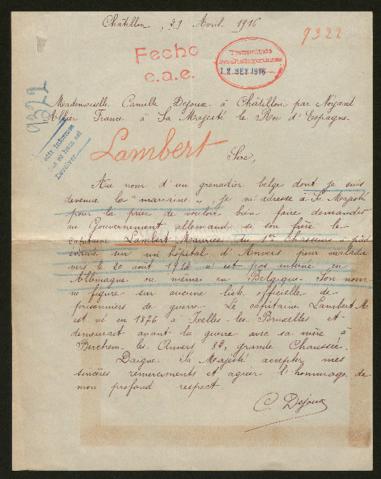 Chatillon, 29 Avril 1916
9322
Fecho
c.a.e.
12 SET 1916
9322
Mademoiselle Camille Dejoux à Châtillon par Noyant
Allier France à Sa Majesté le Roi d'Espagne.
Lambert
Sire,
Au nom d'un grenadier belge dont je suis
devenue la "marraine" je m'adresse à Sa Majesté
pour la prier de vouloir bien faire demander
au Gouvernement allemand si son frère le
capitaine Lambert Maurice du 1er Chasseurs à pied
dans un hôpital d'Anvers pour maladie
vers le 20 août 1914 n'est pas interné en
Allemagne ou même en Belgique. Son nom
ne figure sur aucune liste officielle de
prisonniers de guerre. Le capitaine Lambert M
est né en 1876 à Ixelles-les-Bruxelles et
demeurait avant la guerre avec sa mère à
Berchem-les-Anvers 82, grande Chaussée.
Daigne Sa Majesté accepter mes
sincères remerciements et agréer l'hommage de
mon profond respect
C. Dejoux